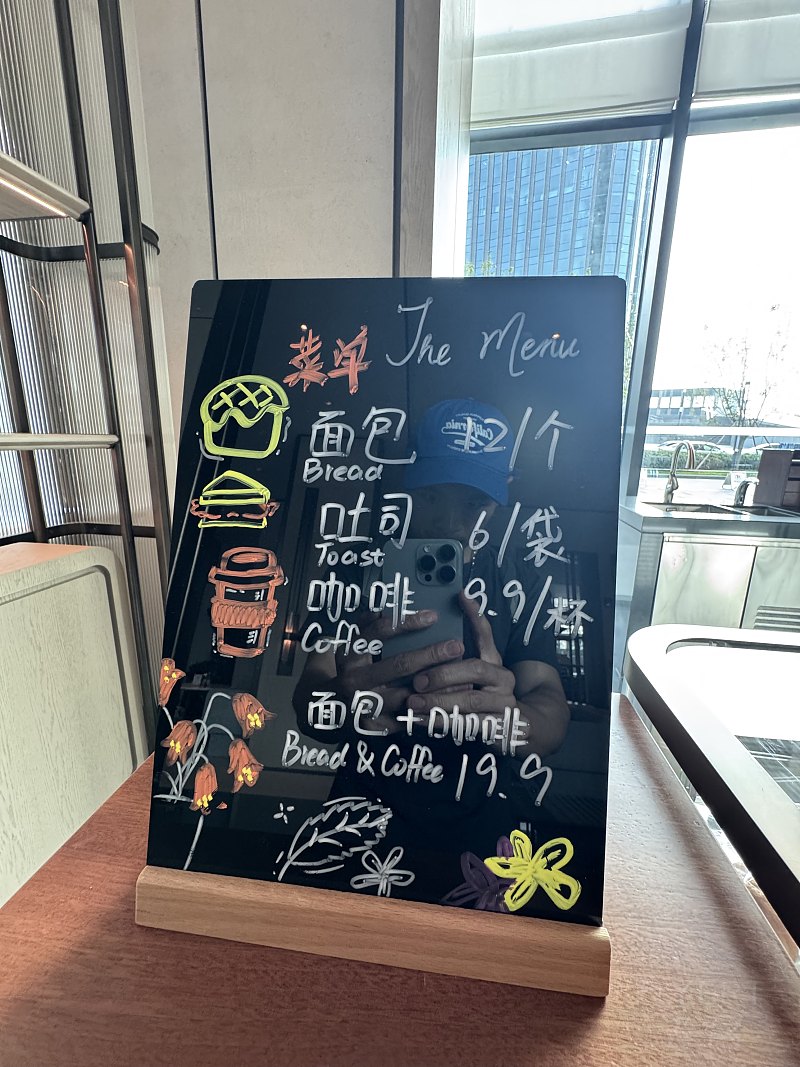 菜单 The Menu
面包 12/个
Bread
吐司 6/袋
Toast
咖啡 9.9/杯
Coffee
面包+咖啡
Bread & Coffee 19.9
California